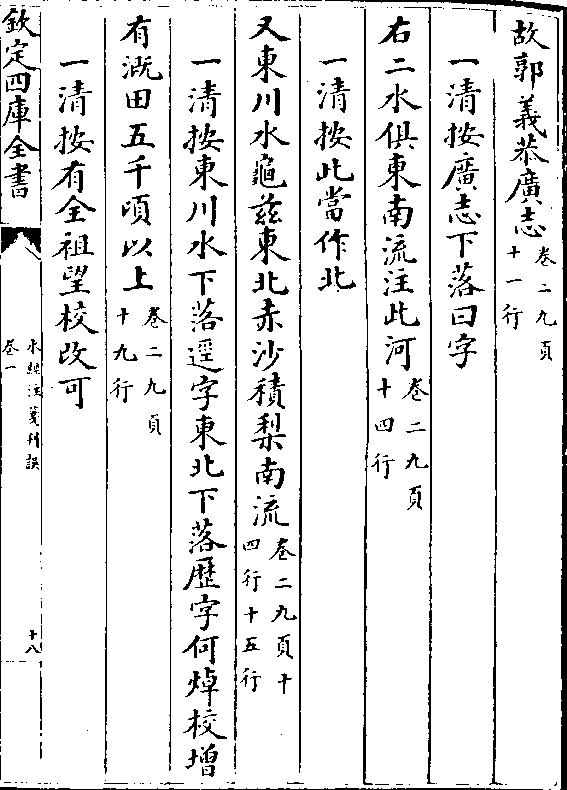 故郭義恭廣志卷二九頁
十一行
一清按廣志下落曰字
右二水俱東南流注此河卷二九頁
十四行
一清按此當作北
又東川水龜茲東北赤沙積梨南流卷二九頁十
四行十五行
一清按東川水下落逕字東北下落歷字何焯校增
有溉田五千頃以上卷二九頁
十九行
一清按有全祖望校改可
欽定四庫全書
水經注箋刊誤
卷一
十八